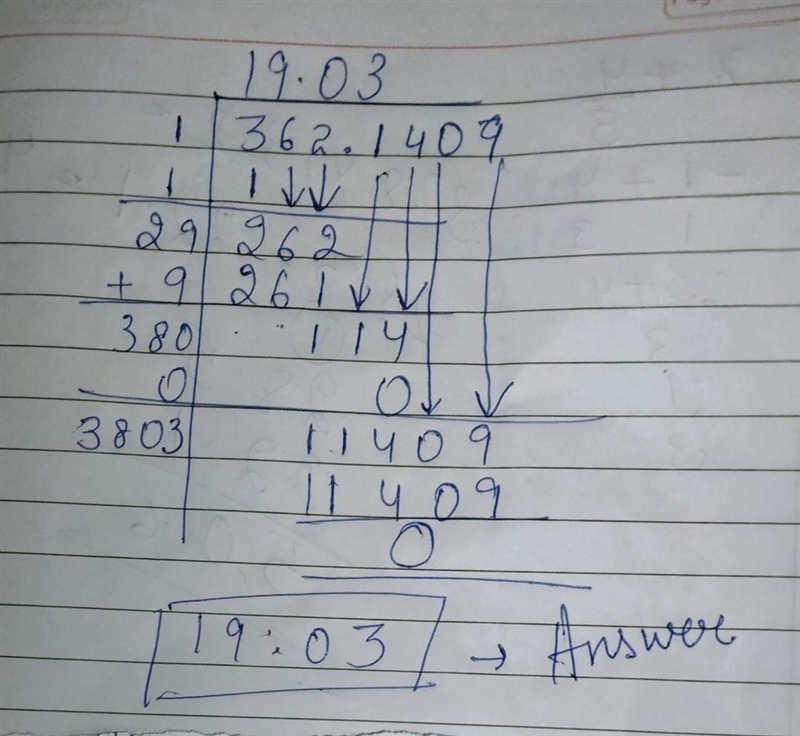 19.03
1 362.1409
1 1
29 262
+ 9 261
380 114
0 0
3803 11409
11409
0
19.03 → Answer